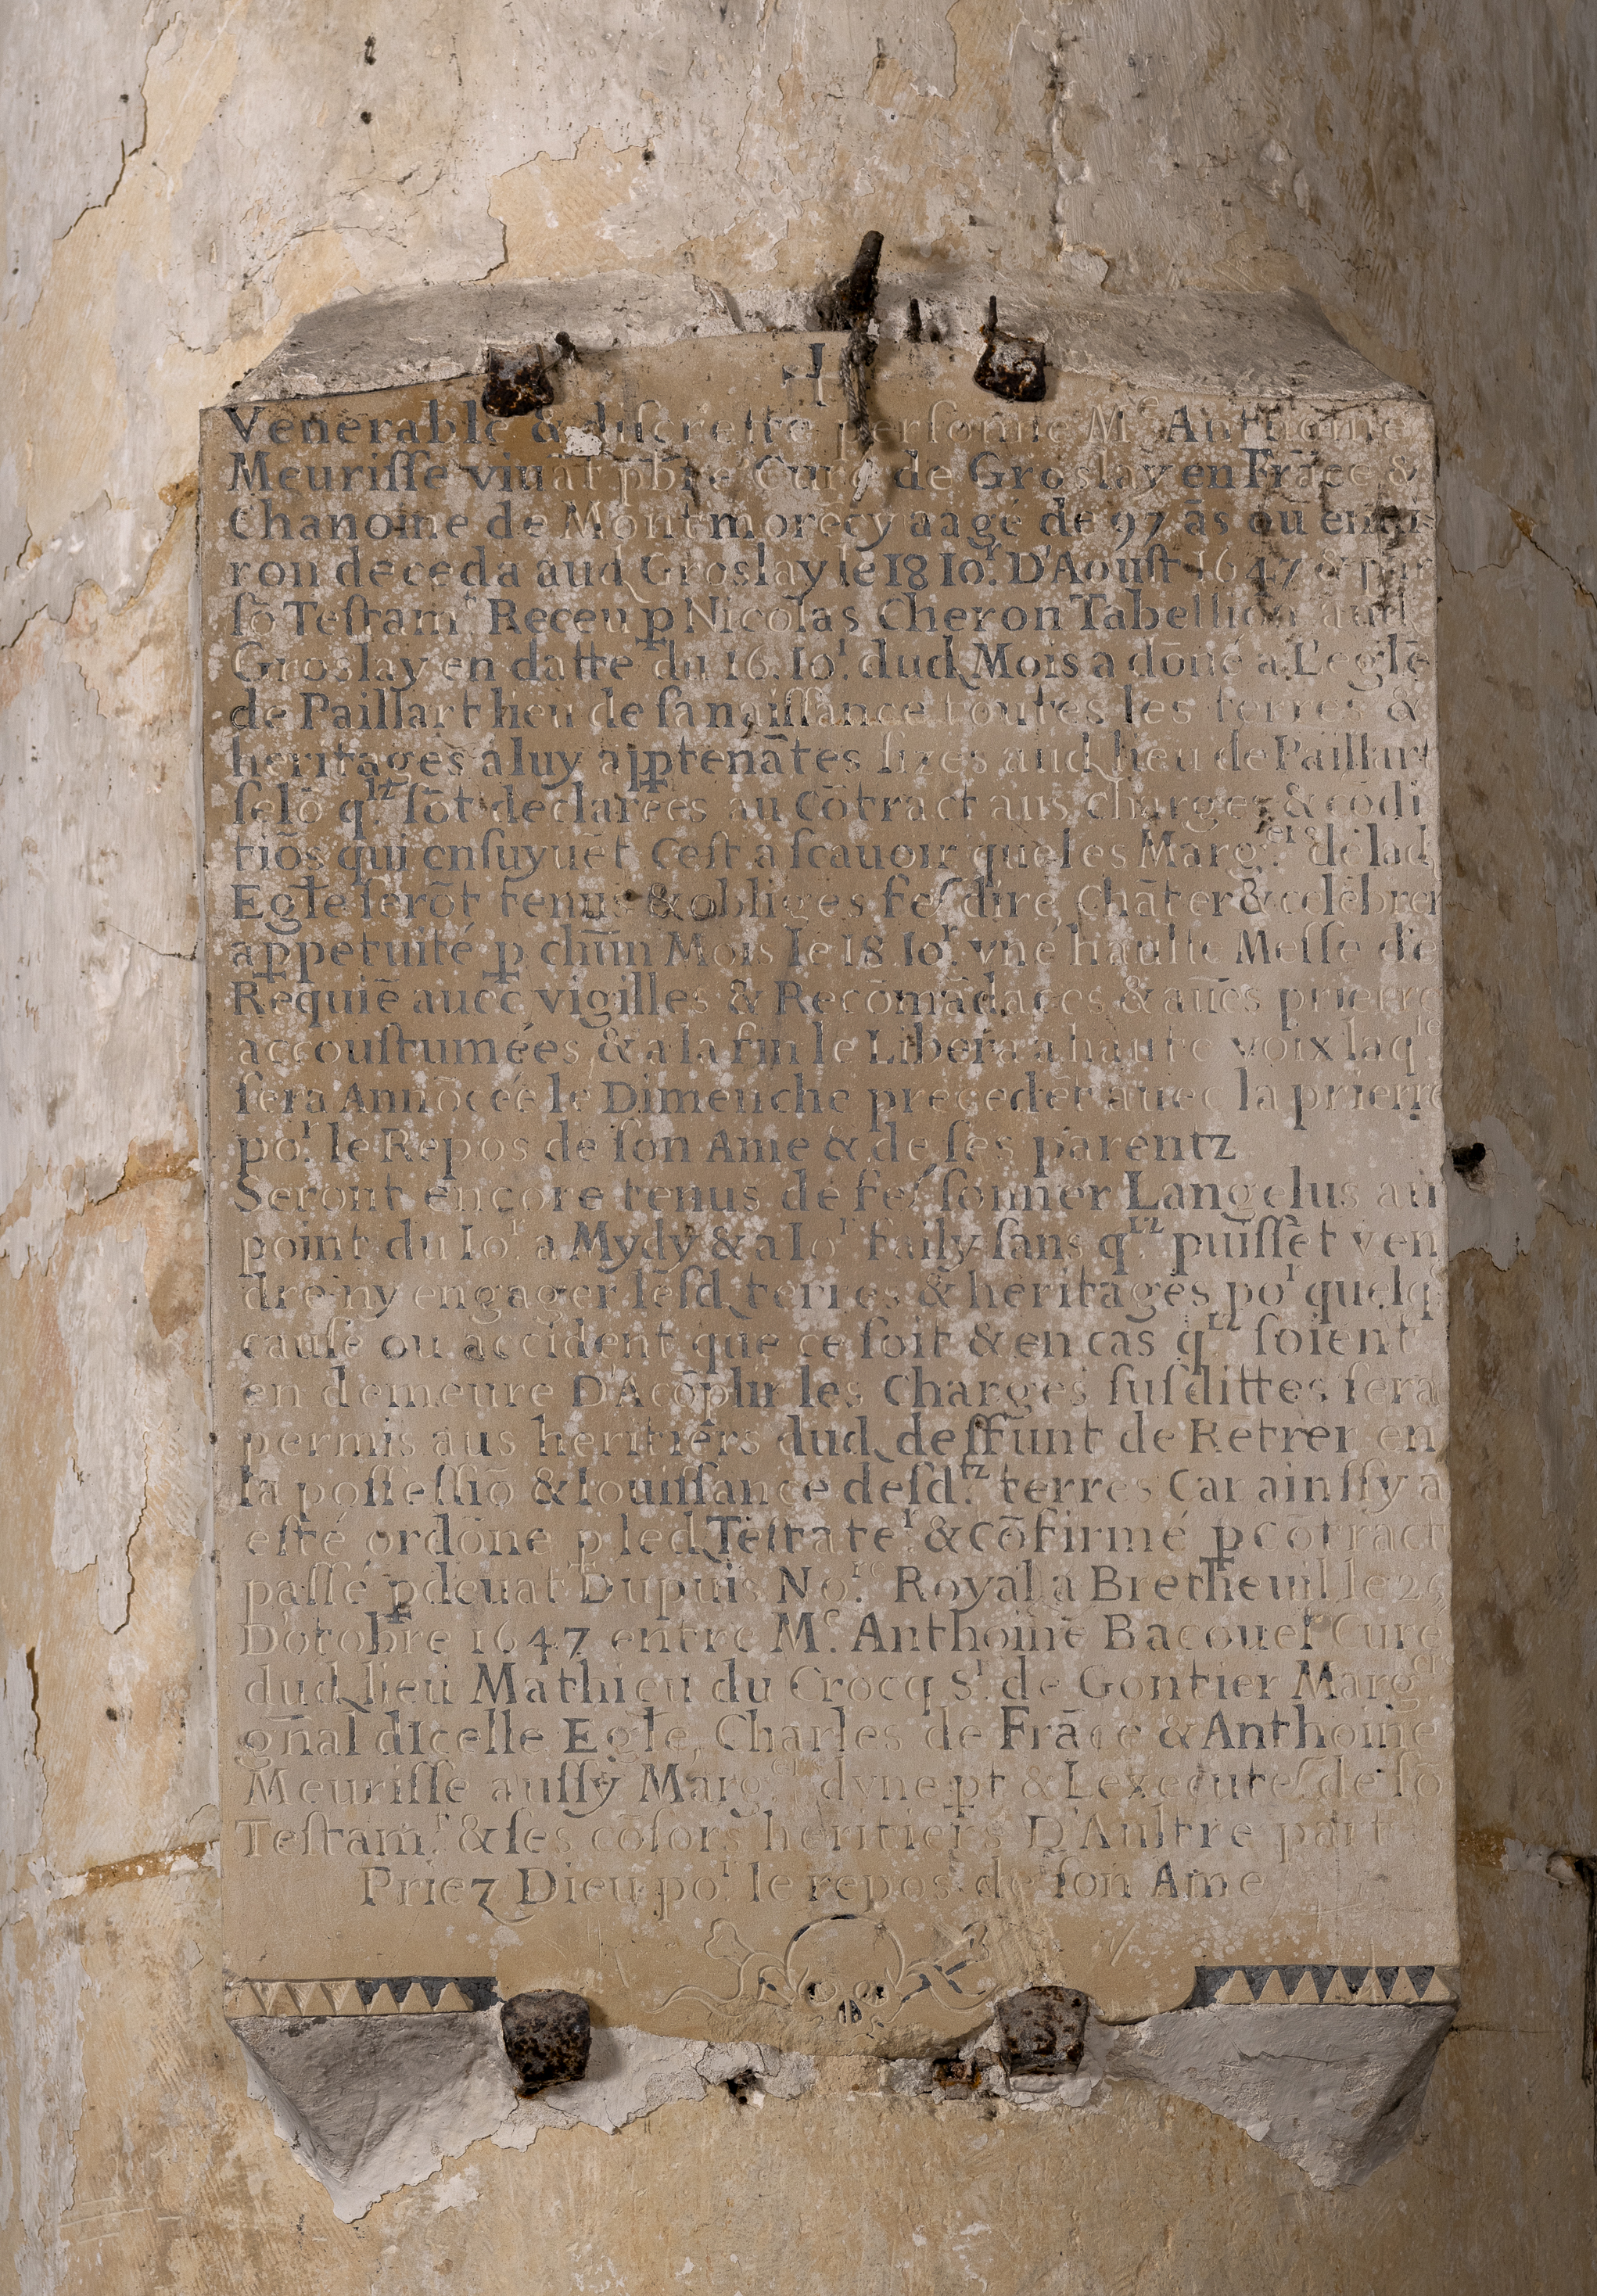 Venerable & discrette perſonne Mͤ Anthoine
Meuriſſe viuāt pb̄re Curé de Groslay en Frāce &
Chanoine de Montmorēcy aagé de 97 ās ou enui
ron deceda aud Groslay le 18 Ioʳ. D'Aouſt 1647 & par
ſō Teſtamᵗ Receu ꝑ Nicolas Cheron Tabellion aud
Groslay en datte du 16. Ioʳ. dud Mois a dōné a L'eglē
de Paillart lieu de ſa naiſſance toutes les terres &
heritages a luy apꝑtenātes ſizes aud lieu de Paillart
ſelō qˡᶻ ſōt declarées au Cōtract aus charges & cōdi
tiōs qui enſuyuēt Ceſt a ſcauoir que les Margᵉʳˢ de lad
Egłe ſerōt tenus & obliges feſ dire Chāter & celēbrer
a ꝑpetuité ꝑ chūn Mois le 18 Ioʳ vne haulte Meſſe de
Requiē auec vigilles & Recōmādaces & aūes prierre
accouſtumées & a la fin le Libera a haute voix laqˡᵉ
ſera Annōcée le Dimenche precedēt auec la prierre
poʳ. le Repos de ſon Ame & de ſes parentz
Seront encore tenus de feſ ſonner Langelus au
point du Ioʳ. a Mydy & a Ioʳ failly ſans qˡᶻ puiſſēt ven
dre ny engager leſd terres & heritages poʳ quelq
cauſe ou accident que ce ſoit & en cas qˡᶻ ſoient
en demeure D'Acōplir les Charges ſuſdittes ſera
permis aus heritiers dud deffunt de Retrer en
la poſſeſſiō & Iouiſſance deſdᵗᶻ terres Car ainſſy a
eſté ordōne ꝑ led Teſtateʳ. & Cōfirmé ꝑ cōtract
paſſé ꝑdeuāt Dupuis Noʳᵉ. Royal a Bretheuil le 25
D'otobre 1647 entre Mᵉ. Anthoine Bacouel Curé
dud lieu Mathieu du Crocq Sʳ. de Gontier Margᵉʳ
gn̄al dIcelle Egłe, Charles de Frāce & Anthoine
Meuriſſe auſſy Margᵉʳˢ dvne ꝑt & Lexecuteſ de ſō
Teſtamᵗ. & ſes cōſors heritiers D'Aultre part
Priez Dieu poʳ. le repos de ſon Ame